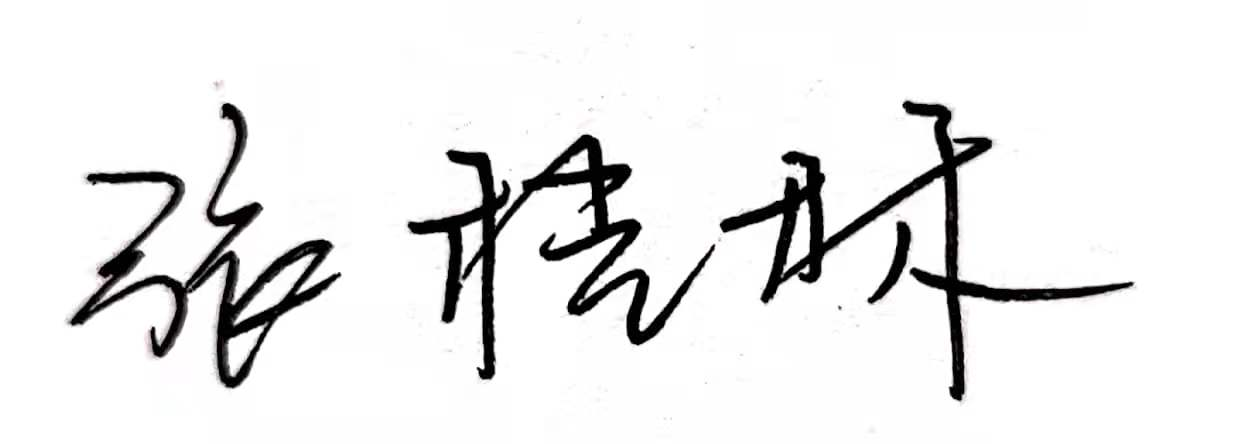 张桂林